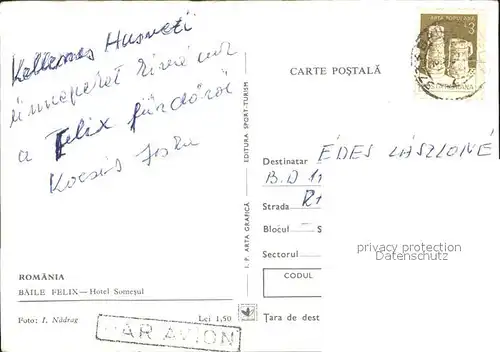 Kellemes Husveti
ünnepeket kíván
a Felix fürdőről
Kocsis Jóska
ROMÂNIA
BĂILE FELIX — Hotel Someșul
Foto: I. Nădrag
Lei 1,50
PAR AVION
I. P. ARTA GRAFICĂ
EDITURA SPORT-TURISM
CARTE POȘTALĂ
ARTA POPULARĂ
L3
ROMANA
Destinatar ÉDES LÁSZLÓNÉ
B.D
Strada
Blocul S
Sectorul
CODUL
Țara de dest
privacy protection
Datenschutz